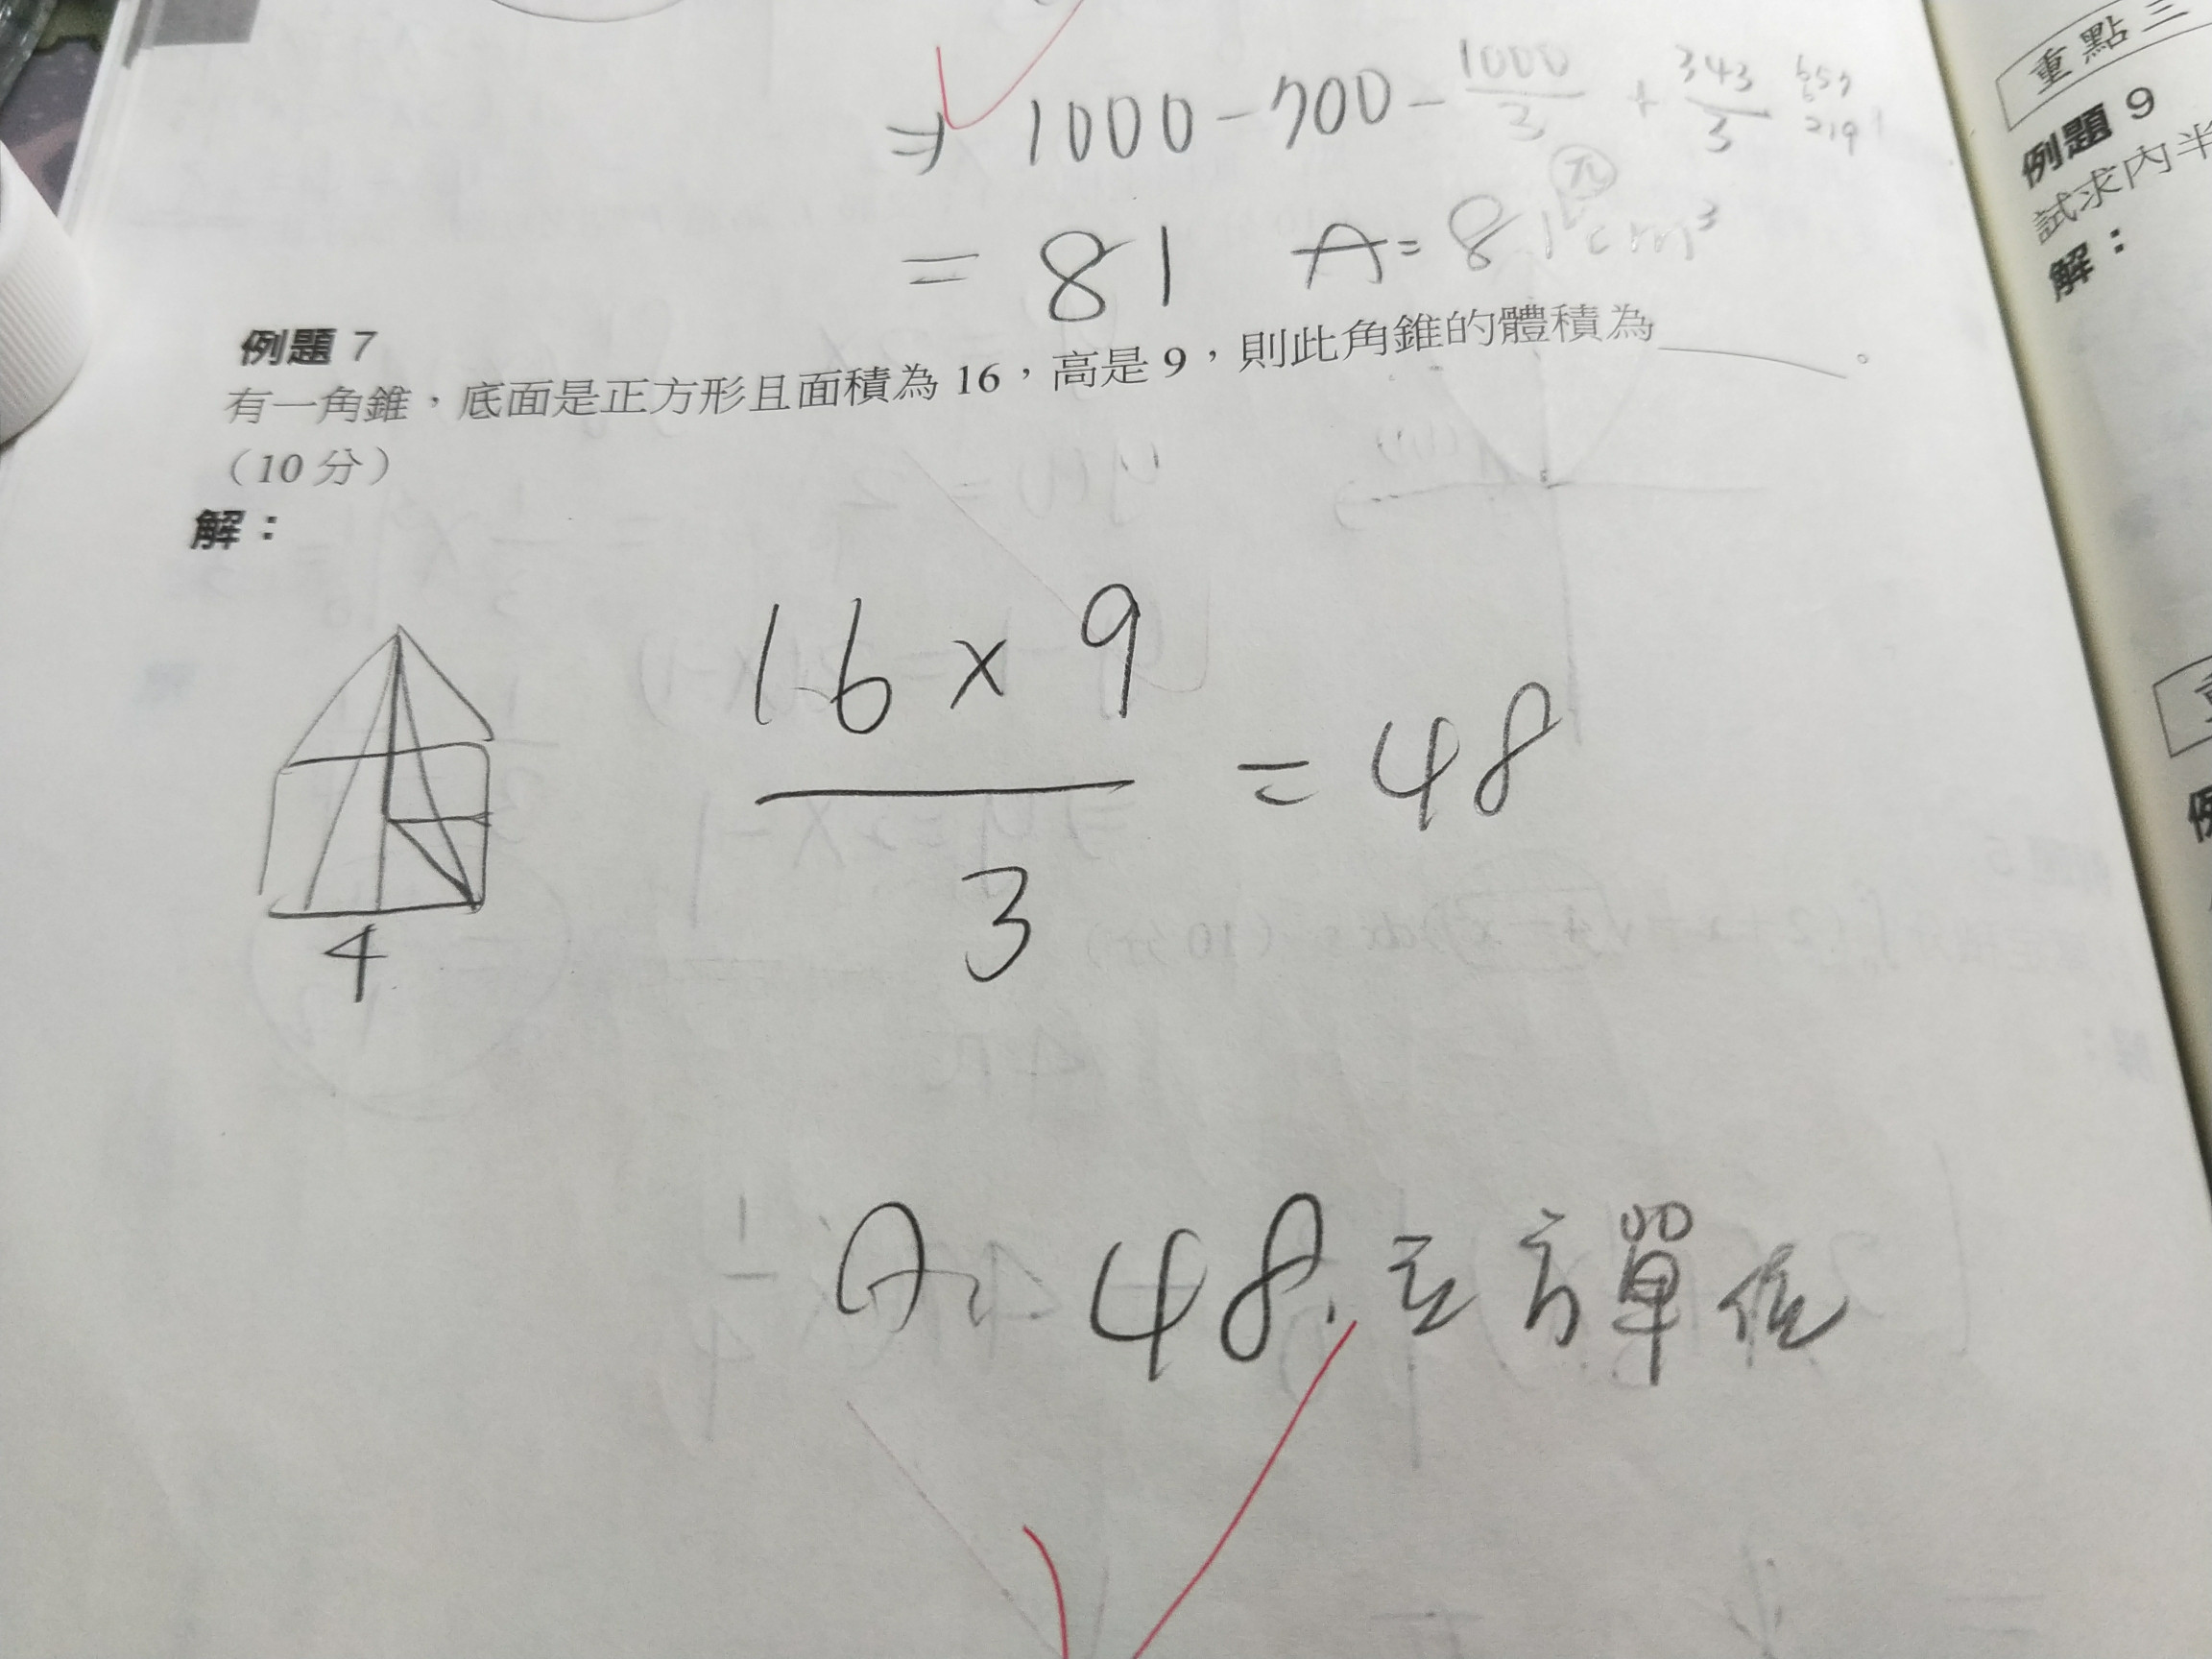 ⇒ 1000 - 700 - 1000/3 + 343/3 657 219
= 81 A = 81π cm³
例題 7
有一角錐，底面是正方形且面積為 16，高是 9，則此角錐的體積為______。
（10 分）
解：
4
16 × 9
3
= 48
A: 48. 立方單位
重點三
例題 9
試求內半
解：